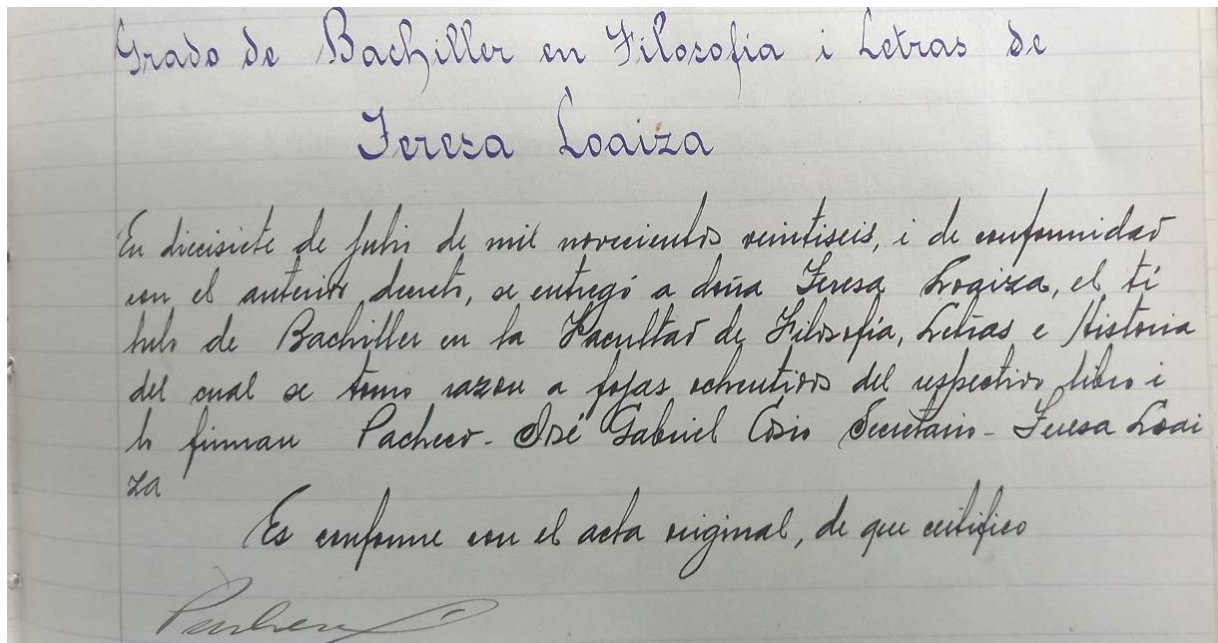 Grado de Bachiller en Filosofia i Letras de
Teresa Loaiza
En diecisiete de Julio de mil novecientos veintiseis, i de conformidad
con el anterior decreto, se entregó a doña Teresa Loaiza, el tí
tulo de Bachiller en la Facultad de Filosofía, Letras e Historia
del cual se tomo razon a fojas ochentidos del respectivo libro i
lo firman Pacheco - José Gabriel Cosio Secretario - Teresa Loai
za
Es conforme con el acta original, de que certifico
Pacheco